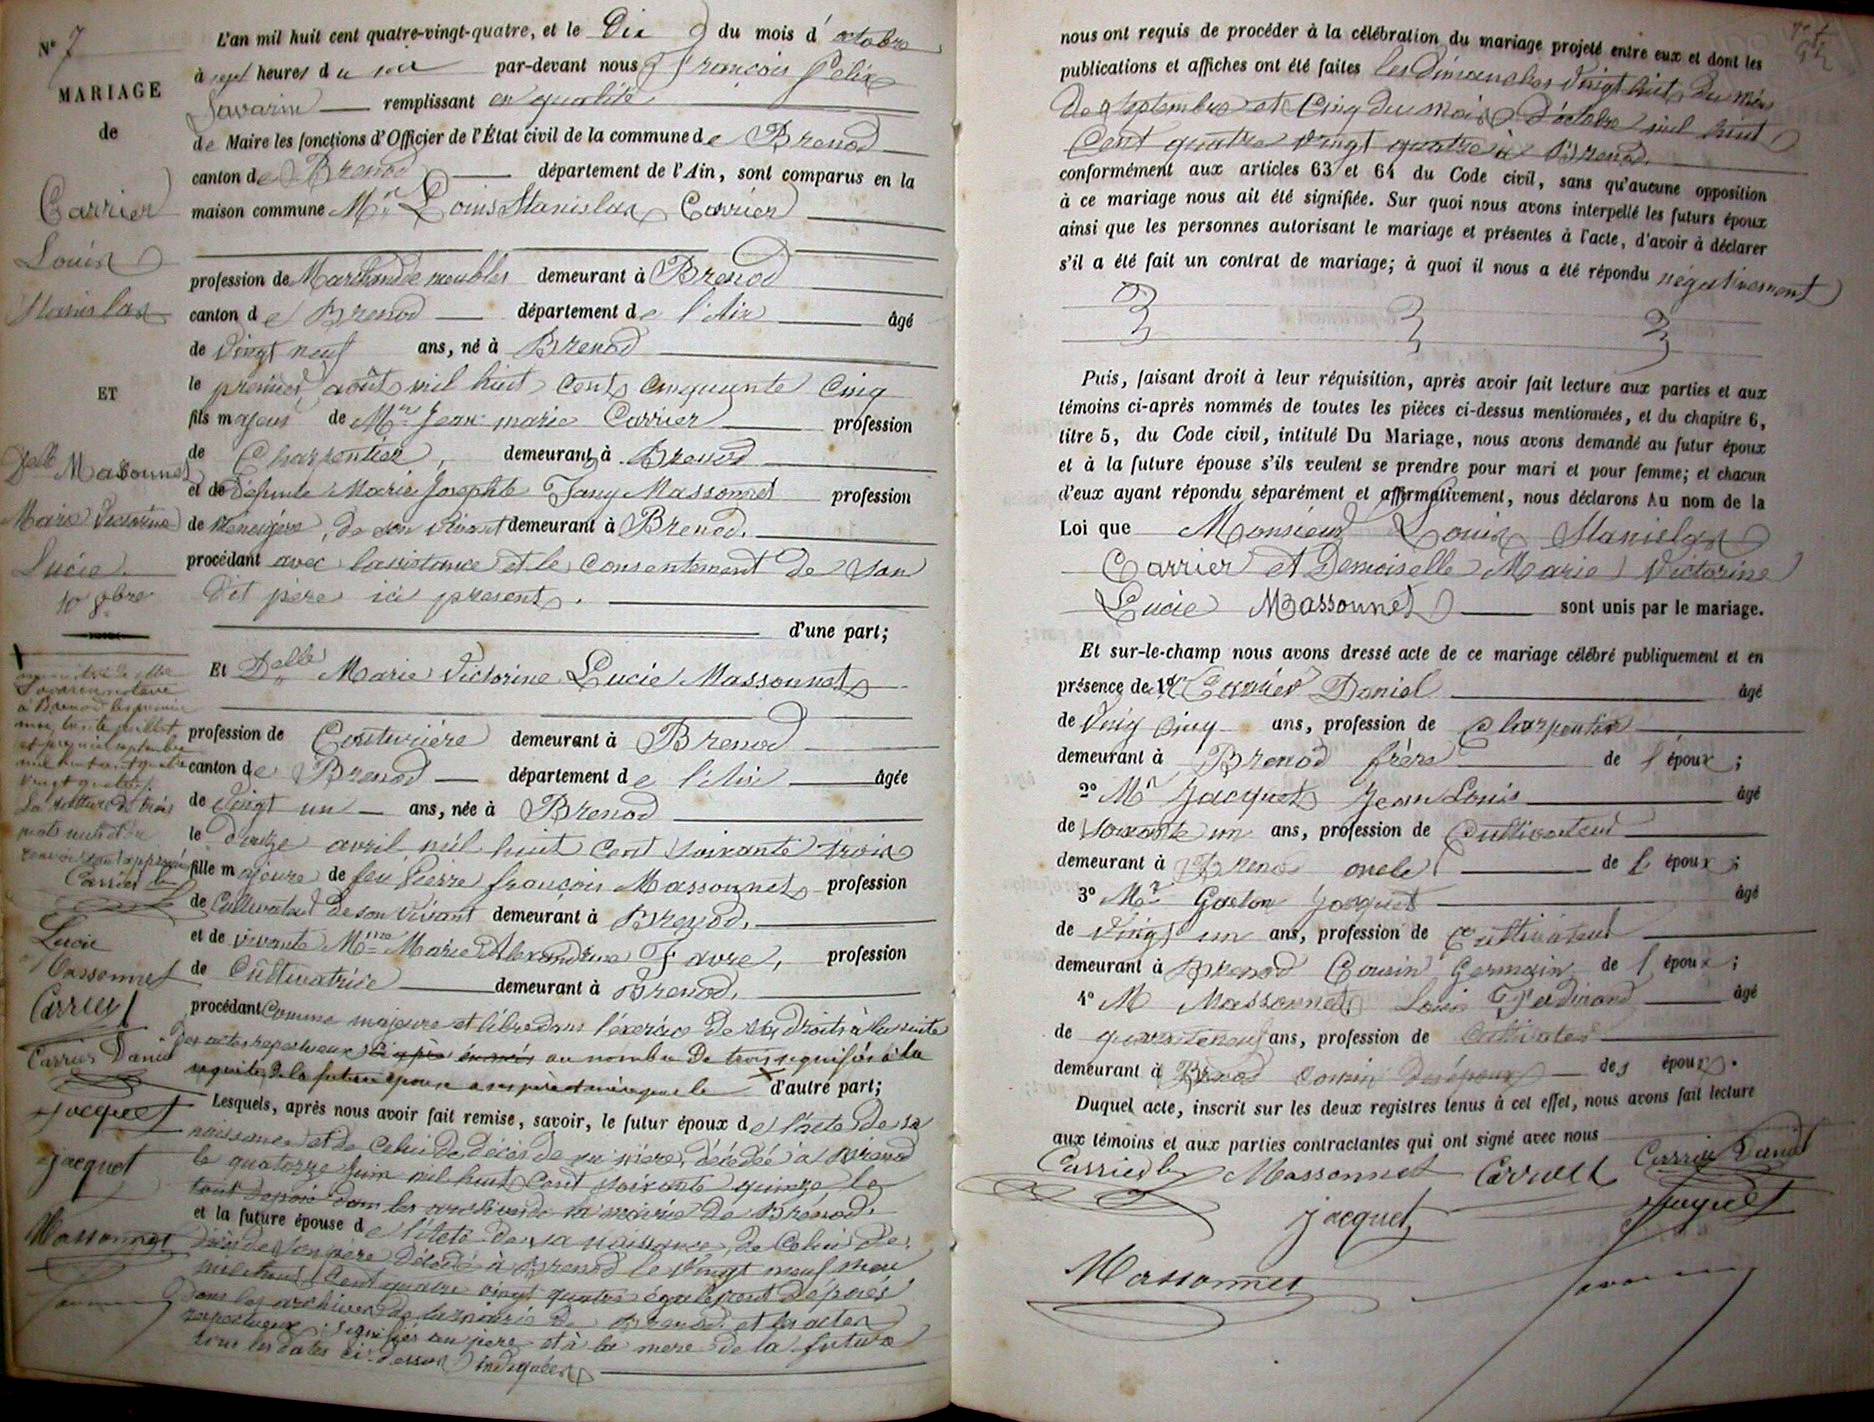 N° 7
MARIAGE
de
Carrier
Louis
Stanislas
ET
Delle Massonnet
Marie Victorine
Lucie
10 8bre
Savarin notaire
à Brenod les premier
mai, trente juillet,
et premier septembre
mil huit cent quatre
vingt quatre.
La rature de trois
mots nuls et le
renvoi sont approuvés
Carrier
Lucie
Massonnet
Carrier
Carrier Daniel
Jacquet
Jacquet
Massonnet
L'an mil huit cent quatre-vingt-quatre, et le Dix du mois d'octobre
à sept heures du soir par-devant nous François Félix
Savarin remplissant en qualité
de Maire les fonctions d'Officier de l'État civil de la commune de Brenod
canton de Brenod département de l'Ain, sont comparus en la
maison commune Mr Louis Stanislas Carrier
profession de Marchand de meubles demeurant à Brenod
canton de Brenod département de l'Ain âgé
de vingt neuf ans, né à Brenod
le premier août mil huit cent cinquante cinq
fils majeur de Mr Jean marie Carrier profession
de Charpentier, demeurant à Brenod
et de Défunte Marie Josephte Fany Massonnet profession
de Ménagère, de son vivant demeurant à Brenod.
procédant avec l'assistance et le consentement de son
Dit père ici présent.
d'une part;
Et Delle Marie Victorine Lucie Massonnet
profession de Couturière demeurant à Brenod
canton de Brenod département de l'Ain âgée
de vingt un ans, née à Brenod
le douze avril mil huit cent soixante trois
fille majeure de feu Pierre françois Massonnet profession
de Cultivateur de son vivant demeurant à Brenod.
et de vivante Mme Marie Alexandrine Favre, profession
de Cultivatrice demeurant à Brenod.
procédant comme majeure et libre dans l'exercice de ses droits à la suite
des actes respectueux au nombre de trois signifiés à la
requête de la future épouse à ses père et mère d'autre part;
Lesquels, après nous avoir fait remise, savoir, le futur époux de l'acte de sa
naissance et de celui de Décès de sa mère, décédée à Brenod
le quatorze juin mil huit cent soixante quinze, le
tout déposé dans les archives de la mairie de Brénod.
et la future épouse de l'acte de sa naissance, de celui de
Décès de son père Décédé à Brenod le vingt neuf mai
mil huit cent quatre vingt quatre également déposés
dans les archives de la mairie de Brenod et les actes
respectueux signifiés au père et à la mere de la future
tous les dates ci-dessus indiquées
nous ont requis de procéder à la célébration du mariage projeté entre eux et dont les
publications et affiches ont été faites les Dimanches vingt huit du mois
de septembre et cinq du mois d'octobre mil huit
cent quatre vingt quatre à Brenod.
conformément aux articles 63 et 64 du Code civil, sans qu'aucune opposition
à ce mariage nous ait été signifiée. Sur quoi nous avons interpellé les futurs époux
ainsi que les personnes autorisant le mariage et présentes à l'acte, d'avoir à déclarer
s'il a été fait un contrat de mariage; à quoi il nous a été répondu négativement
Puis, faisant droit à leur réquisition, après avoir fait lecture aux parties et aux
témoins ci-après nommés de toutes les pièces ci-dessus mentionnées, et du chapitre 6,
titre 5, du Code civil, intitulé Du Mariage, nous avons demandé au futur époux
et à la future épouse s'ils veulent se prendre pour mari et pour femme; et chacun
d'eux ayant répondu séparément et affirmativement, nous déclarons Au nom de la
Loi que Monsieur Louis Stanislas
Carrier et Demoiselle Marie Victorine
Lucie Massonnet sont unis par le mariage.
Et sur-le-champ nous avons dressé acte de ce mariage célébré publiquement et en
présence de 1° Mr Carrier Daniel âgé
de vingt cinq ans, profession de charpentier
demeurant à Brenod frère de l'époux;
2° Mr Jacquet Jean Louis âgé
de soixante un ans, profession de Cultivateur
demeurant à Brenod oncle de l'époux;
3° Mr Gaston Jacquet âgé
de vingt un ans, profession de Cultivateur
demeurant à Brenod Cousin Germain de l'époux;
4° M Massonnet Louis Ferdinand âgé
de quarante neuf ans, profession de Cultivateur
demeurant à Brenod cousin des époux des époux.
Duquel acte, inscrit sur les deux registres tenus à cet effet, nous avons fait lecture
aux témoins et aux parties contractantes qui ont signé avec nous
Carrier Massonnet Carrier Carrier Daniel
Jacquet Jacquet
Massonnet Savarin